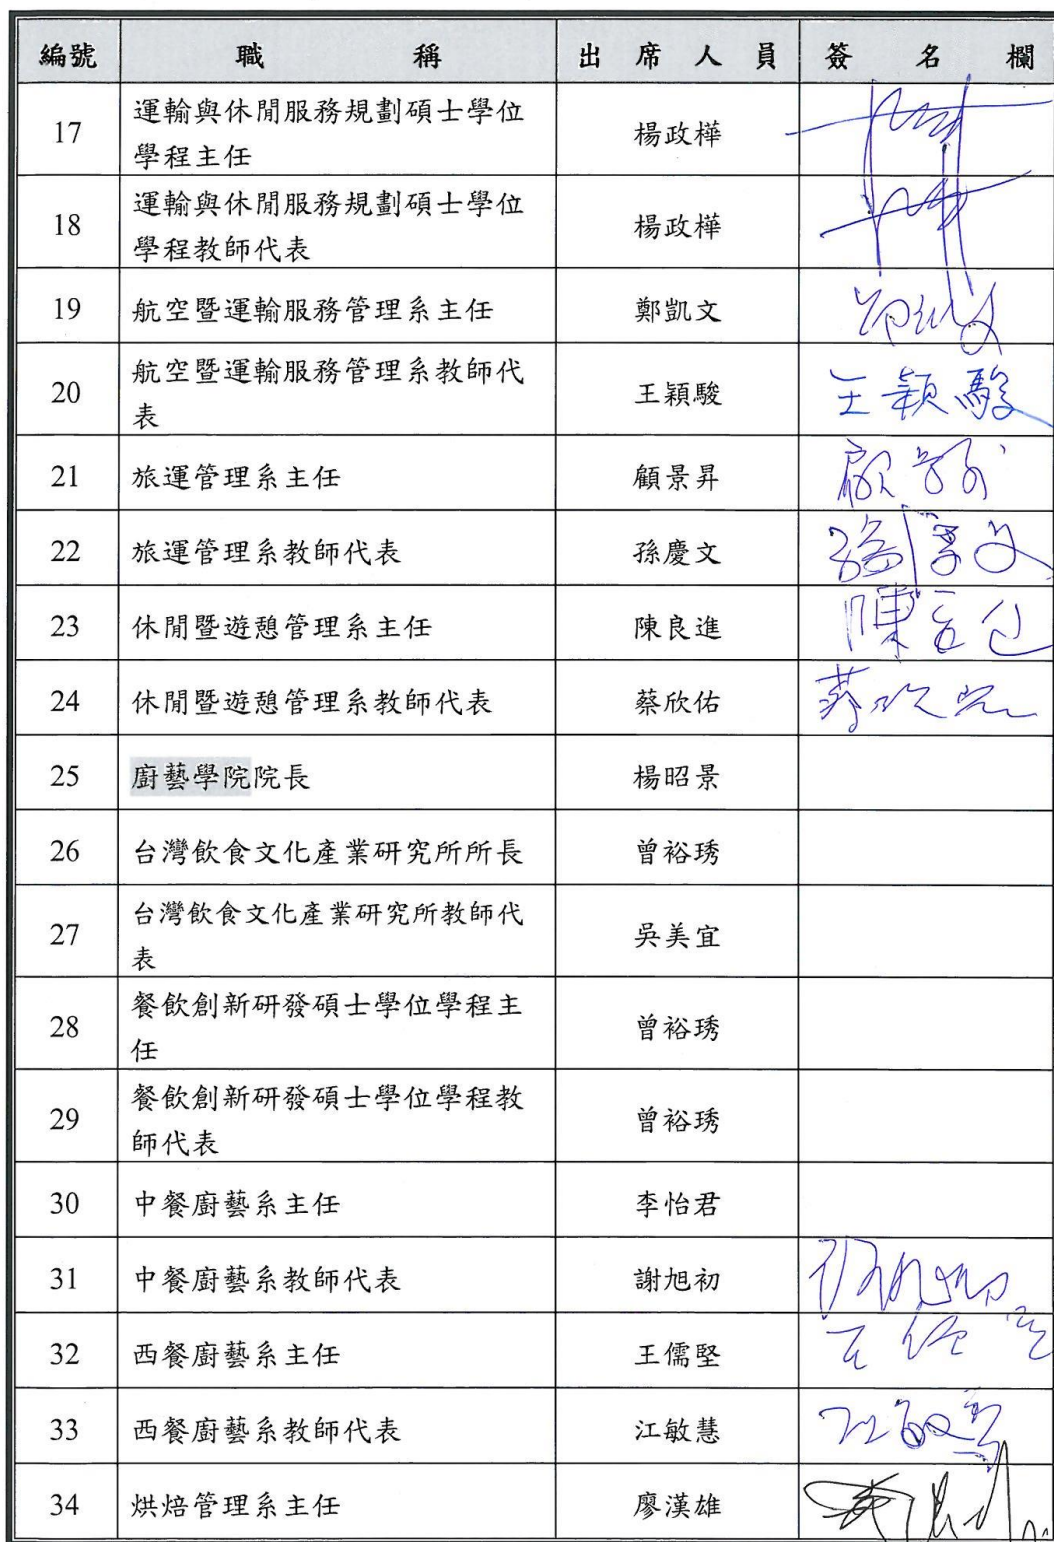 編號 職稱 出席人員 簽名欄
17 運輸與休閒服務規劃碩士學位 楊政樺
學程主任
18 運輸與休閒服務規劃碩士學位 楊政樺
學程教師代表
19 航空暨運輸服務管理系主任 鄭凱文
20 航空暨運輸服務管理系教師代 王穎駿 王穎駿
表
21 旅運管理系主任 顧景昇
22 旅運管理系教師代表 孫慶文
23 休閒暨遊憩管理系主任 陳良進
24 休閒暨遊憩管理系教師代表 蔡欣佑
25 廚藝學院院長 楊昭景
26 台灣飲食文化產業研究所所長 曾裕琇
27 台灣飲食文化產業研究所教師代 吳美宜
表
28 餐飲創新研發碩士學位學程主 曾裕琇
任
29 餐飲創新研發碩士學位學程教 曾裕琇
師代表
30 中餐廚藝系主任 李怡君
31 中餐廚藝系教師代表 謝旭初
32 西餐廚藝系主任 王儒堅
33 西餐廚藝系教師代表 江敏慧
34 烘焙管理系主任 廖漢雄